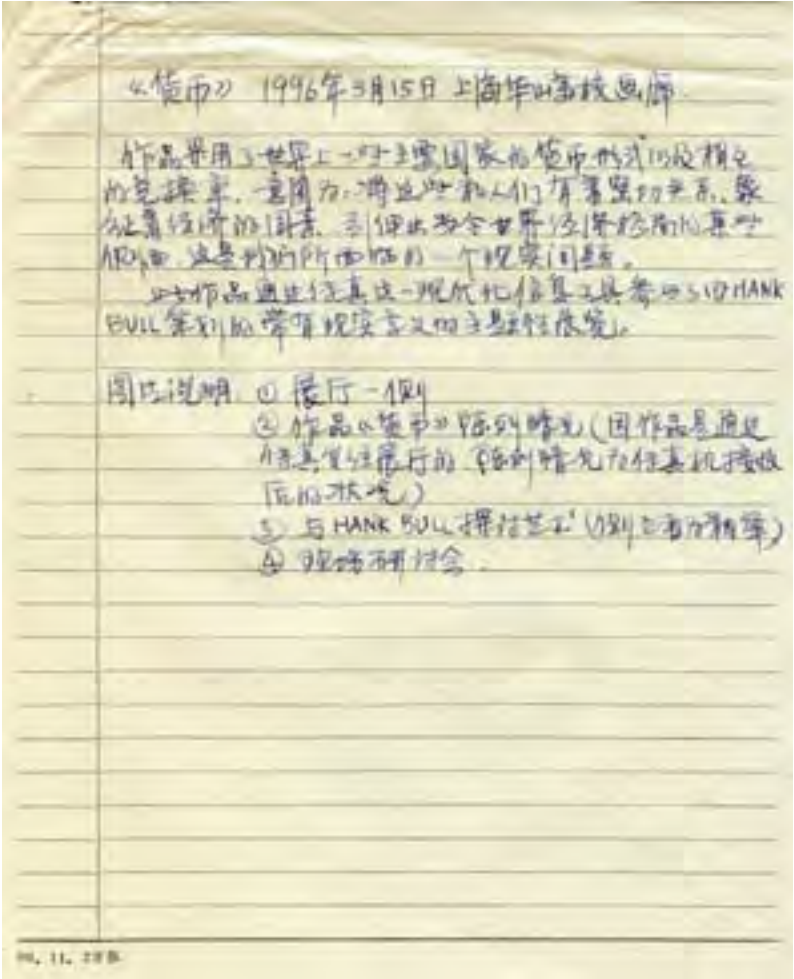 《货币》 1996年3月15日 上海华山美校画廊
作品采用了世界上一些主要国家的货币形式以及相互
的兑换率,意图为:将这些和人们有着紧切关系、象
征着经济的因素,引伸出当今世界经济格局的某些
侧面,这是我们所面临的一个现实问题。
此作品通过传真这一现代化信息工具参与了由HANK
BULL策划的带有现实意义的主题性展览。
图片说明 ① 展厅一侧
② 作品《货币》陈列情况(因作品是通过
传真发往展厅的 陈列情况为传真机接收
后的状况)
③ 与HANK BULL探讨艺术(侧立者为
④ 现场研讨会.
11.